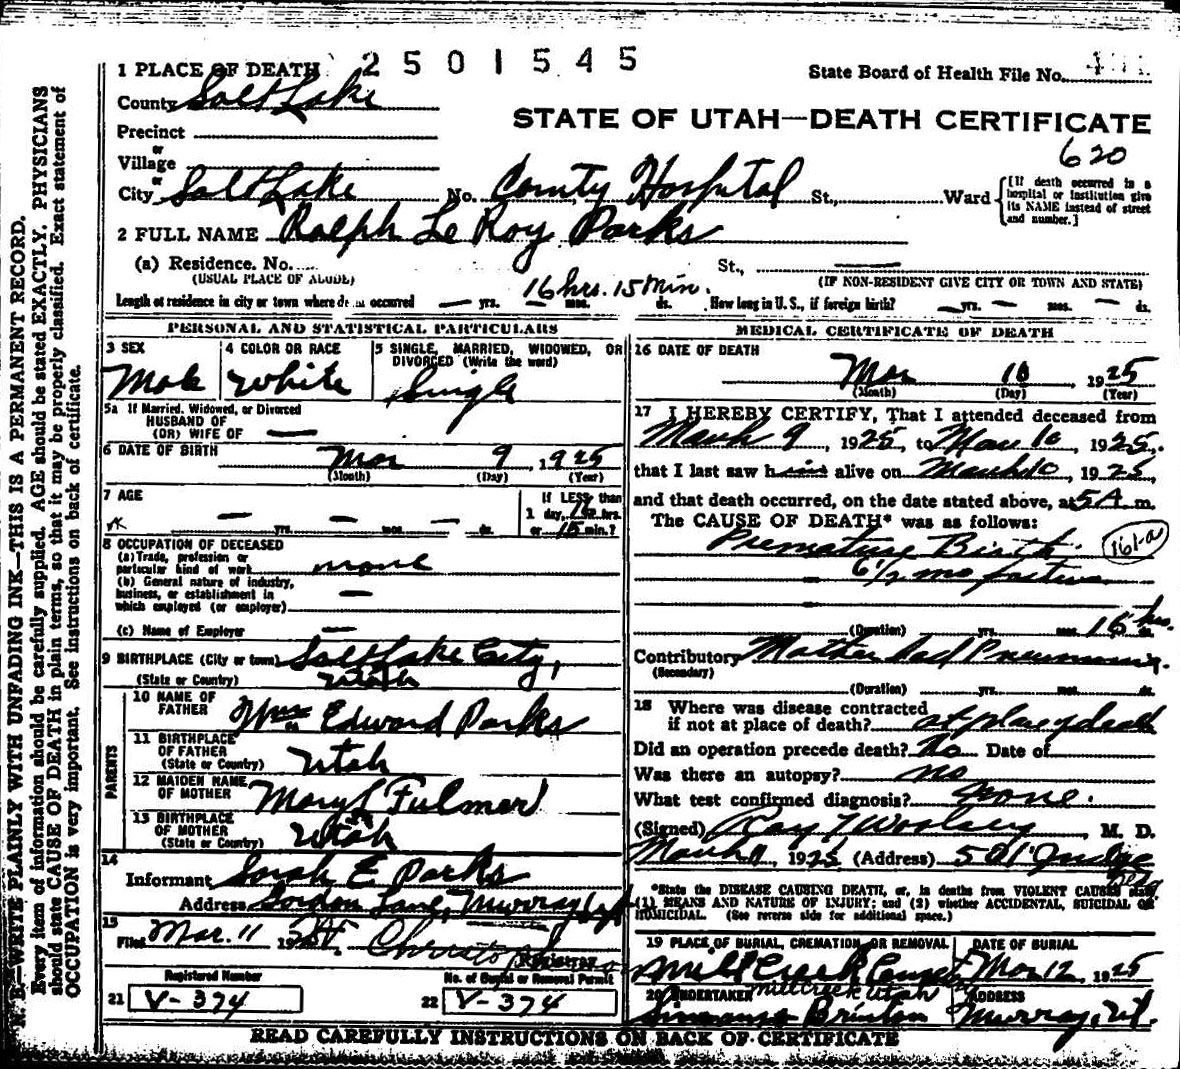 2501545
1 PLACE OF DEATH
State Board of Health File No.
County Salt Lake
STATE OF UTAH—DEATH CERTIFICATE
Precinct
620
or
Village
or
City Salt Lake No. County Hospital St., Ward
[If death occurred in a hospital or institution give its NAME instead of street and number.]
2 FULL NAME Ralph Le Roy Parks
(a) Residence. No. St.,
(USUAL PLACE OF ABODE) (IF NON-RESIDENT GIVE CITY OR TOWN AND STATE)
16 hrs. 15 Min.
Length of residence in city or town where death occurred — yrs. — mos. ds. How long in U.S., if foreign birth? — yrs. — mos. — ds.
PERSONAL AND STATISTICAL PARTICULARS
3 SEX
Male
4 COLOR OR RACE
White
5 SINGLE, MARRIED, WIDOWED, OR DIVORCED (Write the word)
Single
5a If Married, Widowed, or Divorced
HUSBAND OF
(OR) WIFE OF —
6 DATE OF BIRTH
Mar 9, 1925
(Month) (Day) (Year)
7 AGE
— yrs. — mos. — ds.
If LESS than
1 day, 16 hrs.
or 15 min.?
8 OCCUPATION OF DECEASED
(a) Trade, profession or
particular kind of work none
(b) General nature of industry,
business, or establishment in —
which employed (or employer)
(c) Name of Employer —
9 BIRTHPLACE (City or town) Salt Lake City,
(State or Country) Utah
PARENTS
10 NAME OF
FATHER Wm Edward Parks
11 BIRTHPLACE
OF FATHER
(State or Country) Utah
12 MAIDEN NAME
OF MOTHER Mary Fulmer
13 BIRTHPLACE
OF MOTHER
(State or Country) Utah
14
Informant Sarah E Parks
Address Gordon Lane, Murray
15
Filed Mar. 11 192
Registrar
Registered Number
21 V-374
No. of Burial or Removal Permit
22 V-374
MEDICAL CERTIFICATE OF DEATH
16 DATE OF DEATH
Mar 10, 1925
(Month) (Day) (Year)
17 I HEREBY CERTIFY, That I attended deceased from
March 9, 1925, to Mar 10, 1925.
that I last saw him alive on March 10, 1925,
and that death occurred, on the date stated above, at 5 A. m.
The CAUSE OF DEATH* was as follows:
Premature Birth 161-a
6 1/2 mo
(Duration) yrs. mos. 16 hrs. ds.
Contributory Mother had Pneumonia.
(Secondary)
(Duration) yrs. mos. ds.
18 Where was disease contracted
if not at place of death? at place of death
Did an operation precede death? No Date of
Was there an autopsy? no
What test confirmed diagnosis? none.
(Signed) Ray T Woolsey, M. D.
March 11, 1925 (Address) 501 Judge Bldg
*State the DISEASE CAUSING DEATH, or, in deaths from VIOLENT CAUSES state
(1) MEANS AND NATURE OF INJURY; and (2) whether ACCIDENTAL, SUICIDAL OR
HOMICIDAL. (See reverse side for additional space.)
19 PLACE OF BURIAL, CREMATION OR REMOVAL
Mill Creek
DATE OF BURIAL
Mar 12, 1925
20 UNDERTAKER
Mill Creek Utah
Brinton
ADDRESS
Murray, Ut.
READ CAREFULLY INSTRUCTIONS ON BACK OF CERTIFICATE
N. B.—WRITE PLAINLY WITH UNFADING INK—THIS IS A PERMANENT RECORD.
Every item of information should be carefully supplied. AGE should be stated EXACTLY. PHYSICIANS
should state CAUSE OF DEATH in plain terms, so that it may be properly classified. Exact statement of
OCCUPATION is very important. See instructions on back of certificate.